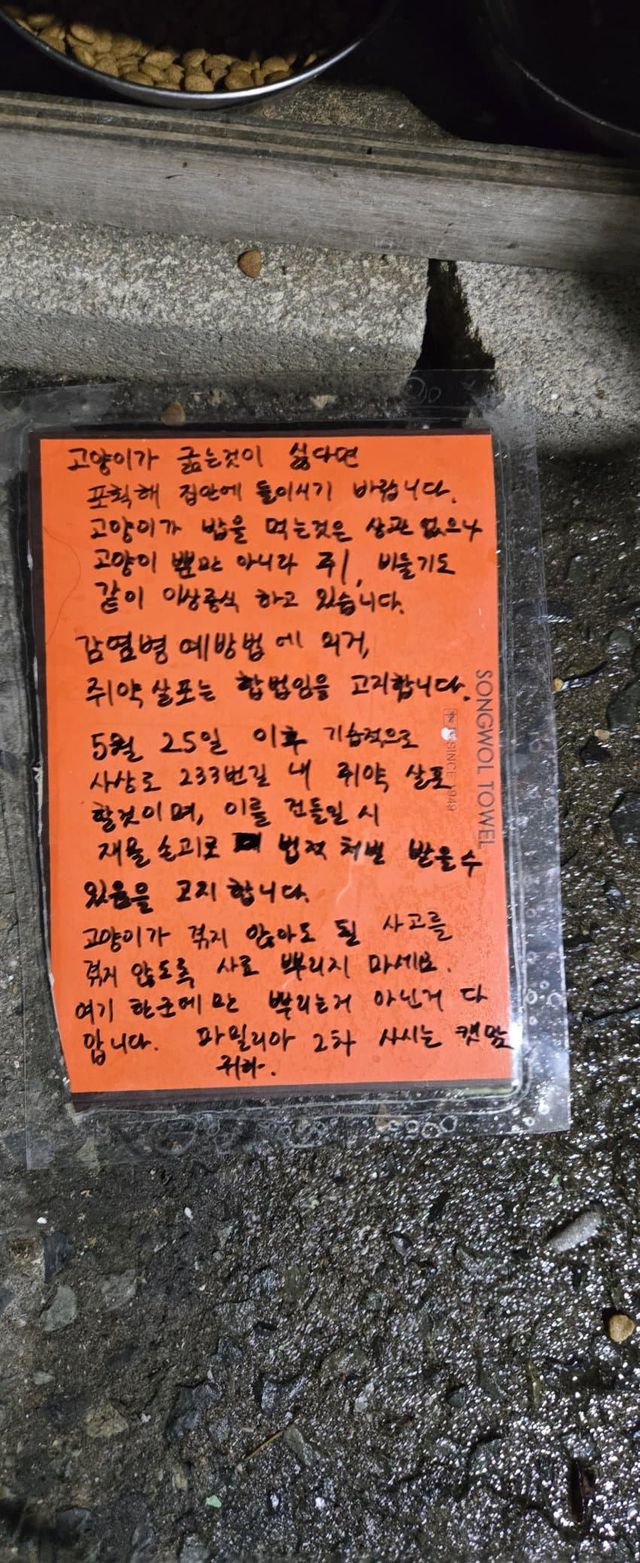 고양이가 굶는것이 싫다면
포획해 집안에 들이시기 바랍니다.
고양이가 밥을 먹는것은 상관 없으나
고양이 뿐만 아니라 쥐, 비둘기도
같이 이상증식 하고 있습니다.
감염병 예방법에 의거,
쥐약 살포는 합법임을 고지합니다.
5월 25일 이후 기습적으로
사상로 233번길 내 쥐약 살포
할것이며, 이를 건들일 시
재물손괴로 법적 처벌 받을수
있음을 고지합니다.
고양이가 겪지 않아도 될 사고를
겪지 않도록 사료 뿌리지 마세요.
여기 한군에만 뿌리는거 아닌거 다
압니다. 파밀리아 2차 사시는 캣맘
귀하.
SONGWOL TOWEL
SINCE 1949